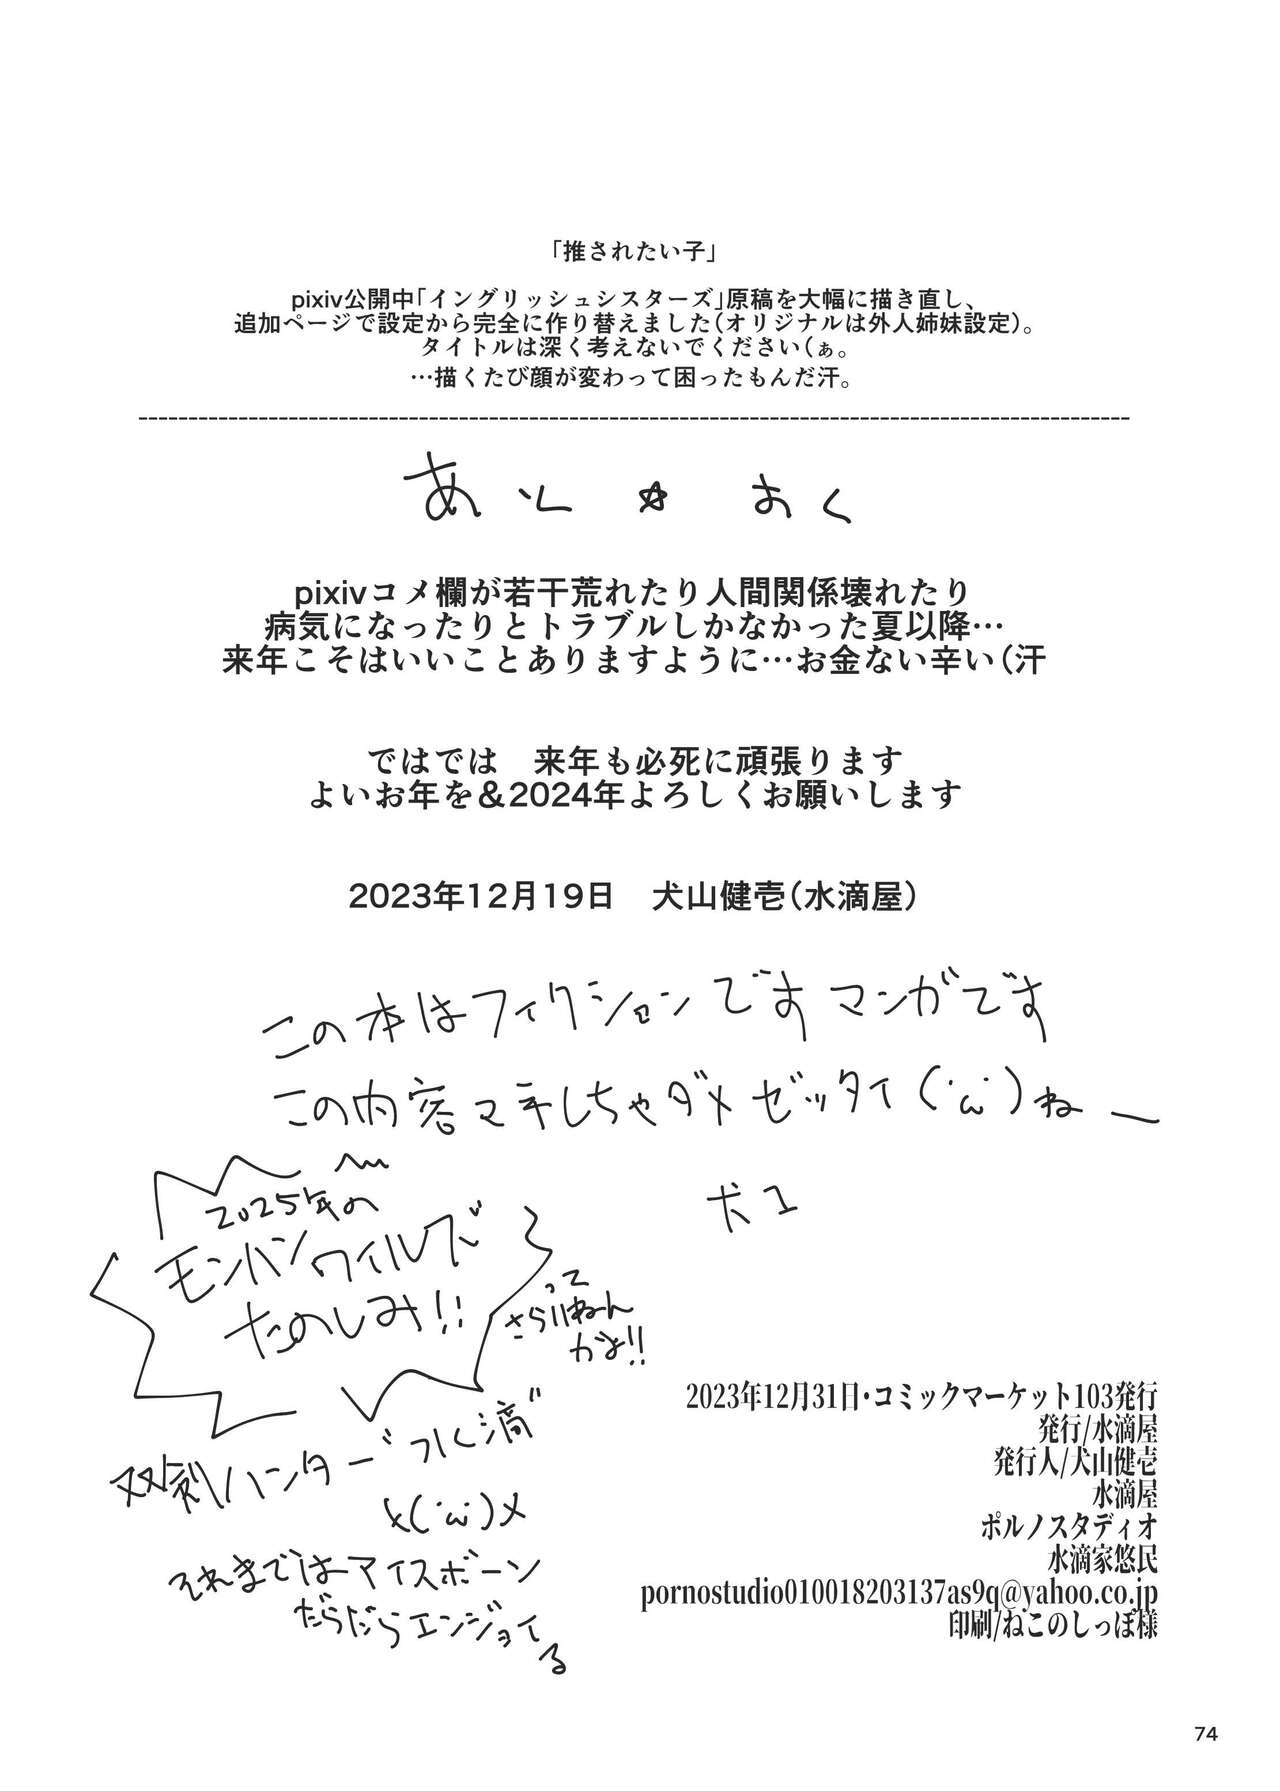 「推されたい子」
pixiv公開中「イングリッシュシスターズ」原稿を大幅に描き直し、
追加ページで設定から完全に作り替えました(オリジナルは外人姉妹設定)。
タイトルは深く考えないでください(ぁ。
…描くたび顔が変わって困ったもんだ汗。
あと☆おく
pixivコメ欄が若干荒れたり人間関係壊れたり
病気になったりとトラブルしかなかった夏以降…
来年こそはいいことありますように…お金ない辛い(汗
ではでは　来年も必死に頑張ります
よいお年を＆2024年よろしくお願いします
2023年12月19日　犬山健壱(水滴屋)
この本はフィクションです マンガです
この内容マネしちゃダメ ゼッタイ(´ω`)ねー
犬1
2025年の
モンハンワイルズ
たのしみ!!
って
さらいねん
かよ!!
双剣ハンター"水滴"
x(´ω`)x
それまではアイスボーン
だらだらエンジョイ
る
2023年12月31日・コミックマーケット103発行
発行/水滴屋
発行人/犬山健壱
水滴屋
ポルノスタディオ
水滴家悠民
pornostudio010018203137as9q@yahoo.co.jp
印刷/ねこのしっぽ様
74